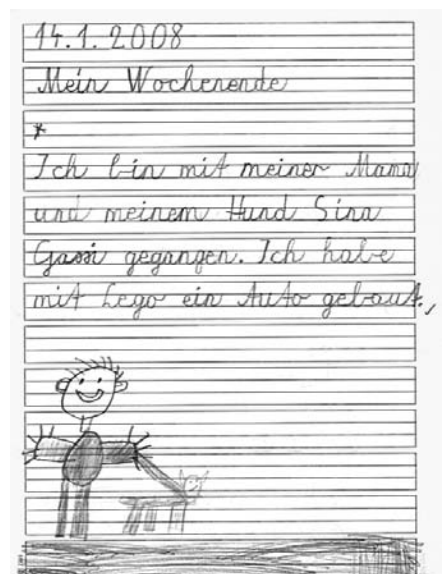 14.1.2008
Mein Wochenende
*
Ich bin mit meiner Mama
und meinem Hund Sina
Gassi gegangen. Ich habe
mit Lego ein Auto gebaut.